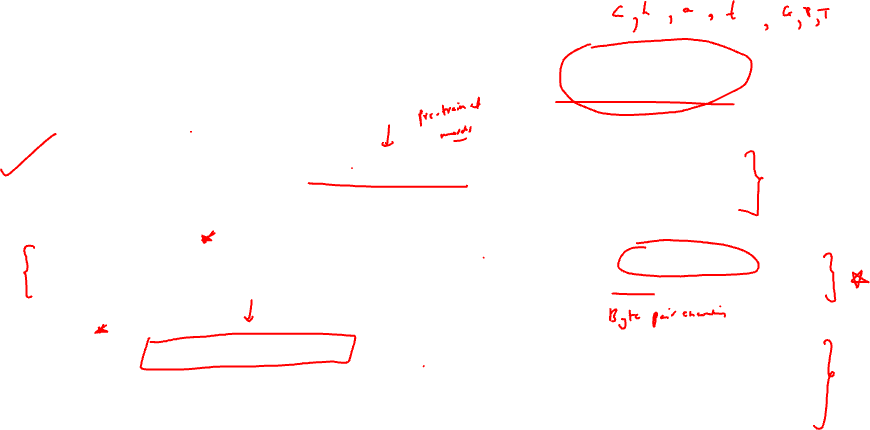 C, h, a, t, G, P, T
Pre-trained
models
Byte pair encoding